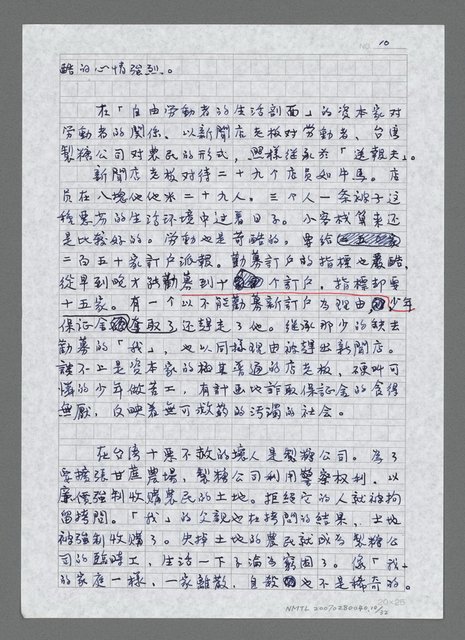 NO. 10
酷的心情強烈。
在「自由勞動者的生活剖面」的資本家對
勞動者的關係、以新聞店老板對勞動者、台灣
製糖公司對農民的形式,照樣継承於「送報夫」。
新聞店老板對待二十九个店員如牛馬。店
員在八塊他他米二十九人。三个人一条被子這
種惡劣的生活环境中过着日子。小客栈算來还
是比較好的。勞動也是苛酷的。要給
二百五十家訂戶派報。勸募訂戶的指標也嚴酷,
從早到晚才能勸募到十个訂戶。指標却要
十五家。有一个以不能勸募新訂戶為理由,少年
保証金奪取了还趕走了他。継承那少的缺去
勸募的「我」,也以同樣理由被趕出新聞店。
談不上是資本家的極其普通的店老板,硬叫可
憐的少年做苦工,有計画地詐取保証金的貪得
無厭,反映着無可救药的污濁的社会。
在台湾十惡不救的壞人是製糖公司。為了
要擴張甘蔗農場,製糖公司利用警察权利,以
廉價強制收購農民的土地。拒絕它的人就被拘
留拷問。「我」的父親也在拷問的結果,土地
被強制收購了。失掉土地的農民就成為製糖公
司的臨時工,生活一下子淪為窮困了。像「我」
的家庭一樣,一家離散,自殺也不是稀奇的。
20×25
NMTL 20070280040.10/32